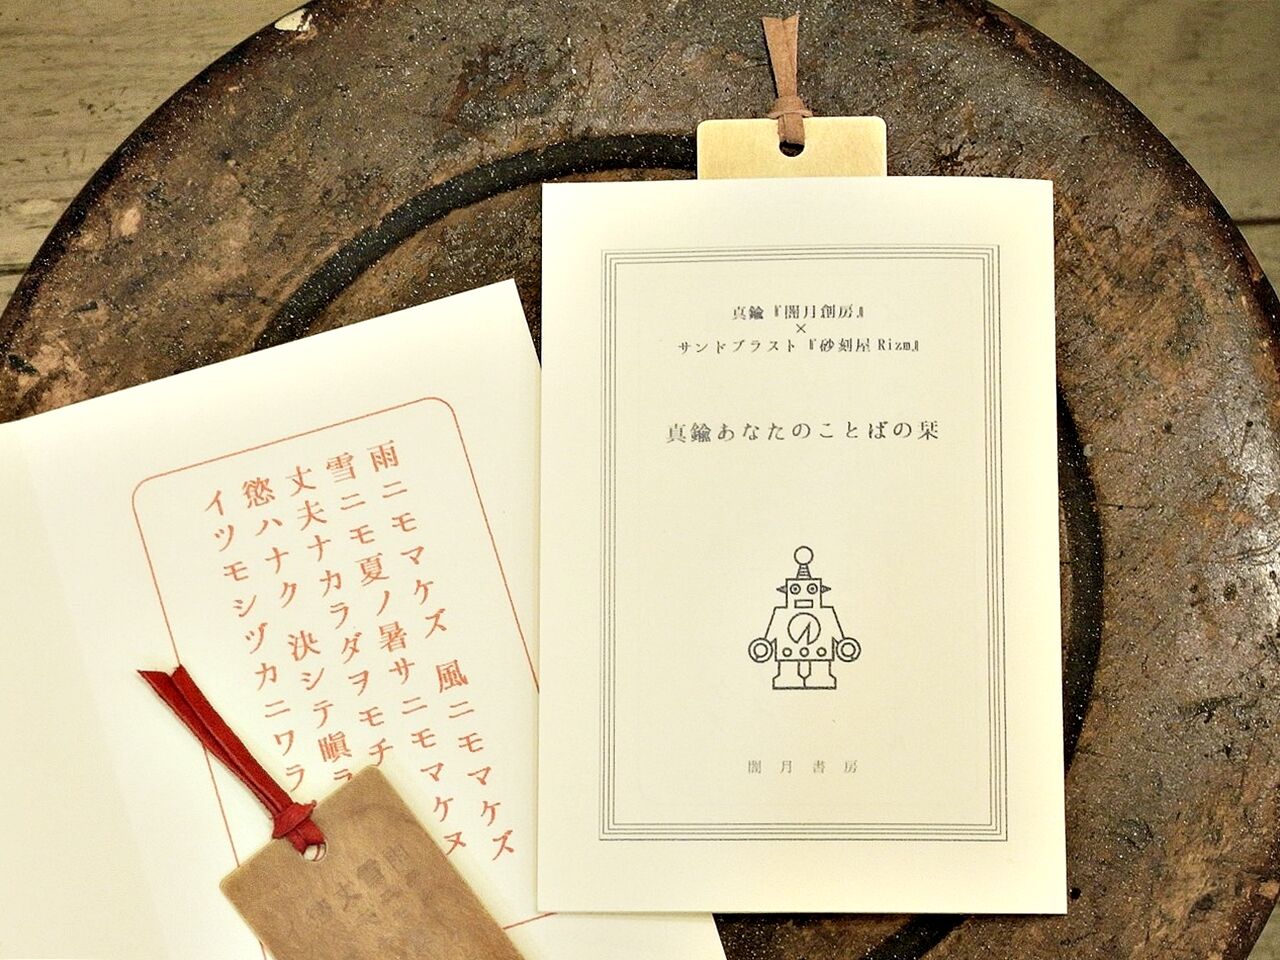 真鍮『闇月創房』
×
サンドブラスト『砂刻屋Rizm』
真鍮あなたのことばの栞
闇月書房
雨ニモマケズ 風ニモマケズ
雪ニモ夏ノ暑サニモマケヌ
丈夫ナカラダヲモチ
慾ハナク 決シテ瞋ラ
イツモシヅカニワラ